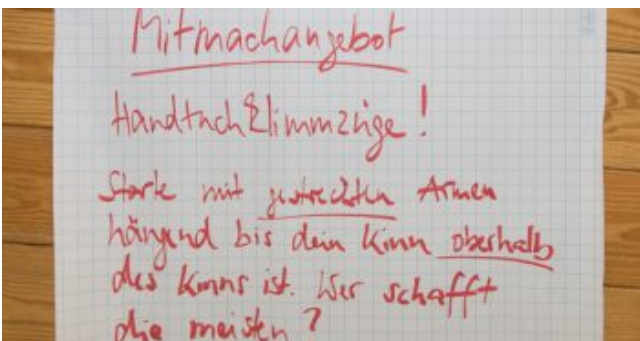 Mitmachangebot
Handtuchklimmzüge!
Starte mit gestreckten Armen
hängend bis dein Kinn oberhalb
des Kinns ist. Wer schafft
die meisten?